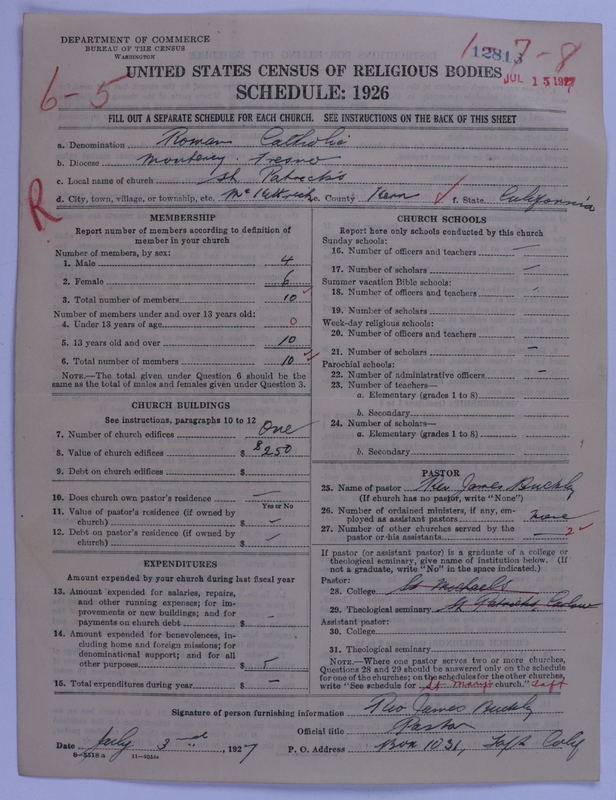 DEPARTMENT OF COMMERCE
BUREAU OF THE CENSUS
WASHINGTON
1 - 7 - 8
12813
JUL 15 1927
6-5
UNITED STATES CENSUS OF RELIGIOUS BODIES
SCHEDULE: 1926
FILL OUT A SEPARATE SCHEDULE FOR EACH CHURCH. SEE INSTRUCTIONS ON THE BACK OF THIS SHEET
a. Denomination Roman Catholic
b. Diocese Monterey. Fresno
c. Local name of church St Patrick's
d. City, town, village, or township, etc. McKittrick e. County Kern ✓ f. State California
R
MEMBERSHIP
Report number of members according to definition of
member in your church
Number of members, by sex:
1. Male 4
2. Female 6
3. Total number of members 10 ✓
Number of members under and over 13 years old:
4. Under 13 years of age 0
5. 13 years old and over 10
6. Total number of members 10 ✓
NOTE.—The total given under Question 6 should be
the same as the total of males and females given under Question 3.
CHURCH BUILDINGS
See instructions, paragraphs 10 to 12
7. Number of church edifices One
8. Value of church edifices $ $250
9. Debt on church edifices $
10. Does church own pastor's residence —
Yes or No
11. Value of pastor's residence (if owned by
church) $ —
12. Debt on pastor's residence (if owned by
church) $ —
EXPENDITURES
Amount expended by your church during last fiscal year
13. Amount expended for salaries, repairs,
and other running expenses; for im-
provements or new buildings; and for
payments on church debt $ -
14. Amount expended for benevolences, in-
cluding home and foreign missions; for
denominational support; and for all
other purposes $ 5
15. Total expenditures during year $ —
CHURCH SCHOOLS
Report here only schools conducted by this church
Sunday schools:
16. Number of officers and teachers —
17. Number of scholars —
Summer vacation Bible schools:
18. Number of officers and teachers -
19. Number of scholars
Week-day religious schools:
20. Number of officers and teachers
21. Number of scholars —
Parochial schools:
22. Number of administrative officers —
23. Number of teachers—
a. Elementary (grades 1 to 8)
b. Secondary
24. Number of scholars—
a. Elementary (grades 1 to 8)
b. Secondary
PASTOR
25. Name of pastor Rev James Buckley
(If church has no pastor, write "None")
26. Number of ordained ministers, if any, em-
ployed as assistant pastors none
27. Number of other churches served by the
pastor or his assistants — 2 ✓
If pastor (or assistant pastor) is a graduate of a college or
theological seminary, give name of institution below. (If
not a graduate, write "No" in the space indicated.)
Pastor:
28. College St Michaels
29. Theological seminary St Patricks Carlow
Assistant pastor:
30. College
31. Theological seminary
NOTE.—Where one pastor serves two or more churches,
Questions 28 and 29 should be answered only on the schedule
for one of the churches; on the schedules for the other churches,
write "See schedule for St. Mary's church." Taft
Signature of person furnishing information Rev James Buckley
Official title Pastor
Date July 3rd, 1927 P. O. Address Box 1031, Taft Calif
8-5518a 11-9034a